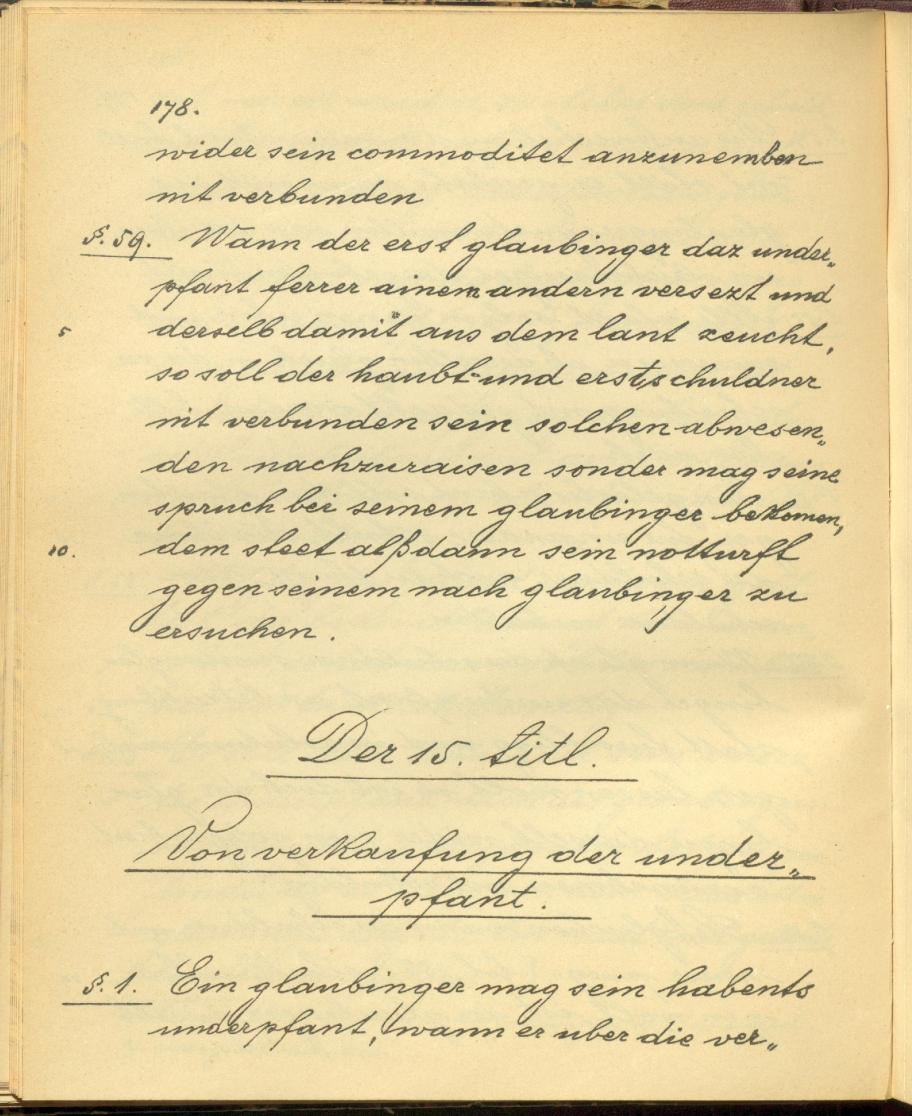 178.
wider sein commoditet anzunemben
nit verbunden
§. 59. Wann der erst glaubinger daz under„
pfant ferrer ainem andern versezt und
5 derselb damit aus dem lant zeucht,
so soll der haubt- und erst schuldner
nit verbunden sein solchen abwesen„
den nachzuraisen sonder mag seine
spruch bei seinem glaubinger bekomen,
10. dem steet alßdann sein notturft
gegen seinem nach glaubinger zu
ersuchen.
Der 15. titl.
Von verkaufung der under„
pfant.
§. 1. Ein glaubinger mag sein habents
underpfant, wann er uber die ver„